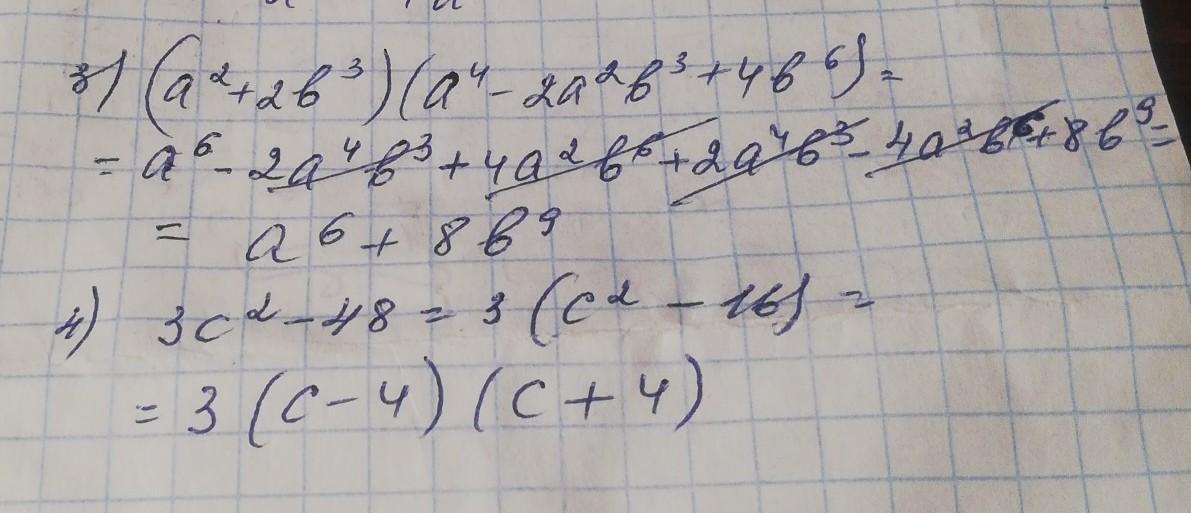 3) (a² + 2b³)(a⁴ - 2a²b³ + 4b⁶) =
= a⁶ - 2a⁴b³ + 4a²b⁶ + 2a⁴b³ - 4a²b⁶ + 8b⁹ =
= a⁶ + 8b⁹
4) 3c² - 48 = 3(c² - 16) =
= 3(c - 4)(c + 4)